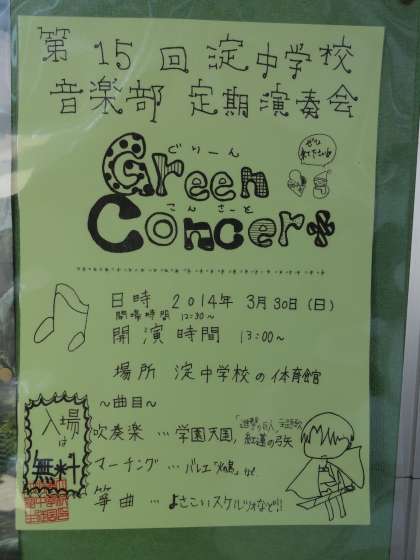 第15回 淀中学校
音楽部 定期演奏会
ぐりーん
Green
こんさーと
Concert
ぜひ来て下さいね
日時 2014年 3月30日(日)
開場時間 12:30～
開演時間 13:00～
場所 淀中学校の体育館
～曲目～
吹奏楽 … 学園天国,「進撃の巨人」主題歌 紅蓮の弓矢
マーチング … バレエ「火の鳥」 など
箏曲 … よさこいスケルツォなど!!
入場は無料